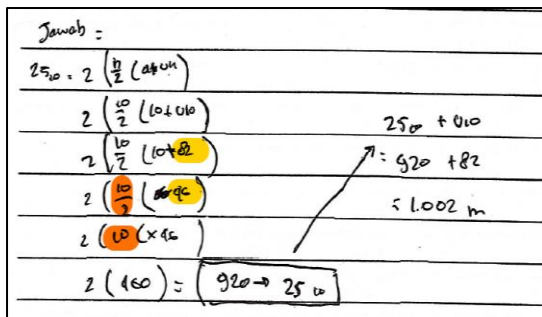 Jawab =
2S₁₀ = 2 (n/2 (a+Un)
2 (10/2 (10+U10)
2 (10/2 (10+82)
2 (10/2 (46)
2 (10 (×46)
2 (460) = 920 → 2S₁₀
2S₁₀ + U10
= 920 + 82
= 1.002 m